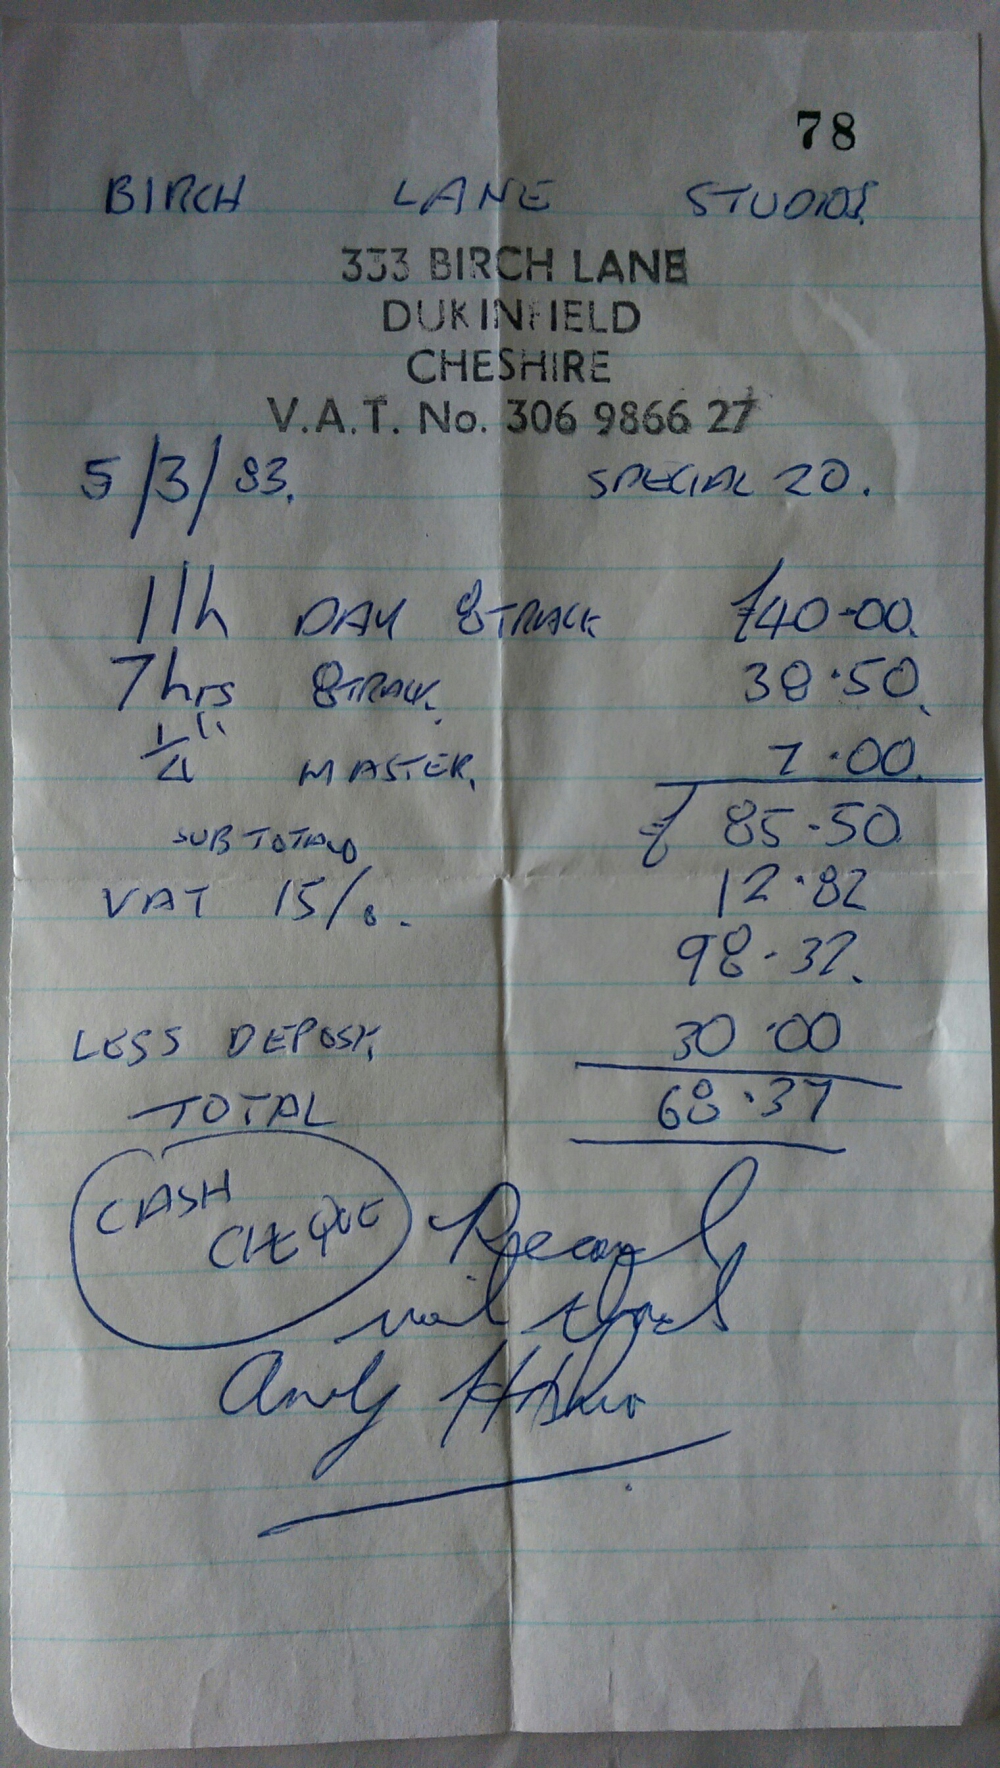 78
BIRCH LANE STUDIOS
333 BIRCH LANE
DUKINFIELD
CHESHIRE
V.A.T. No. 306 9866 27
5/3/83. SPECIAL 20.
11h DAY 8TRACK £40.00.
7hrs 8TRACK. 38.50.
1/4" MASTER. 7.00.
SUB TOTAL £ 85.50
VAT 15%. 12.82
98.32.
LESS DEPOSIT. 30.00
TOTAL 68.37
CASH
CHEQUE Received
with thanks
Andy